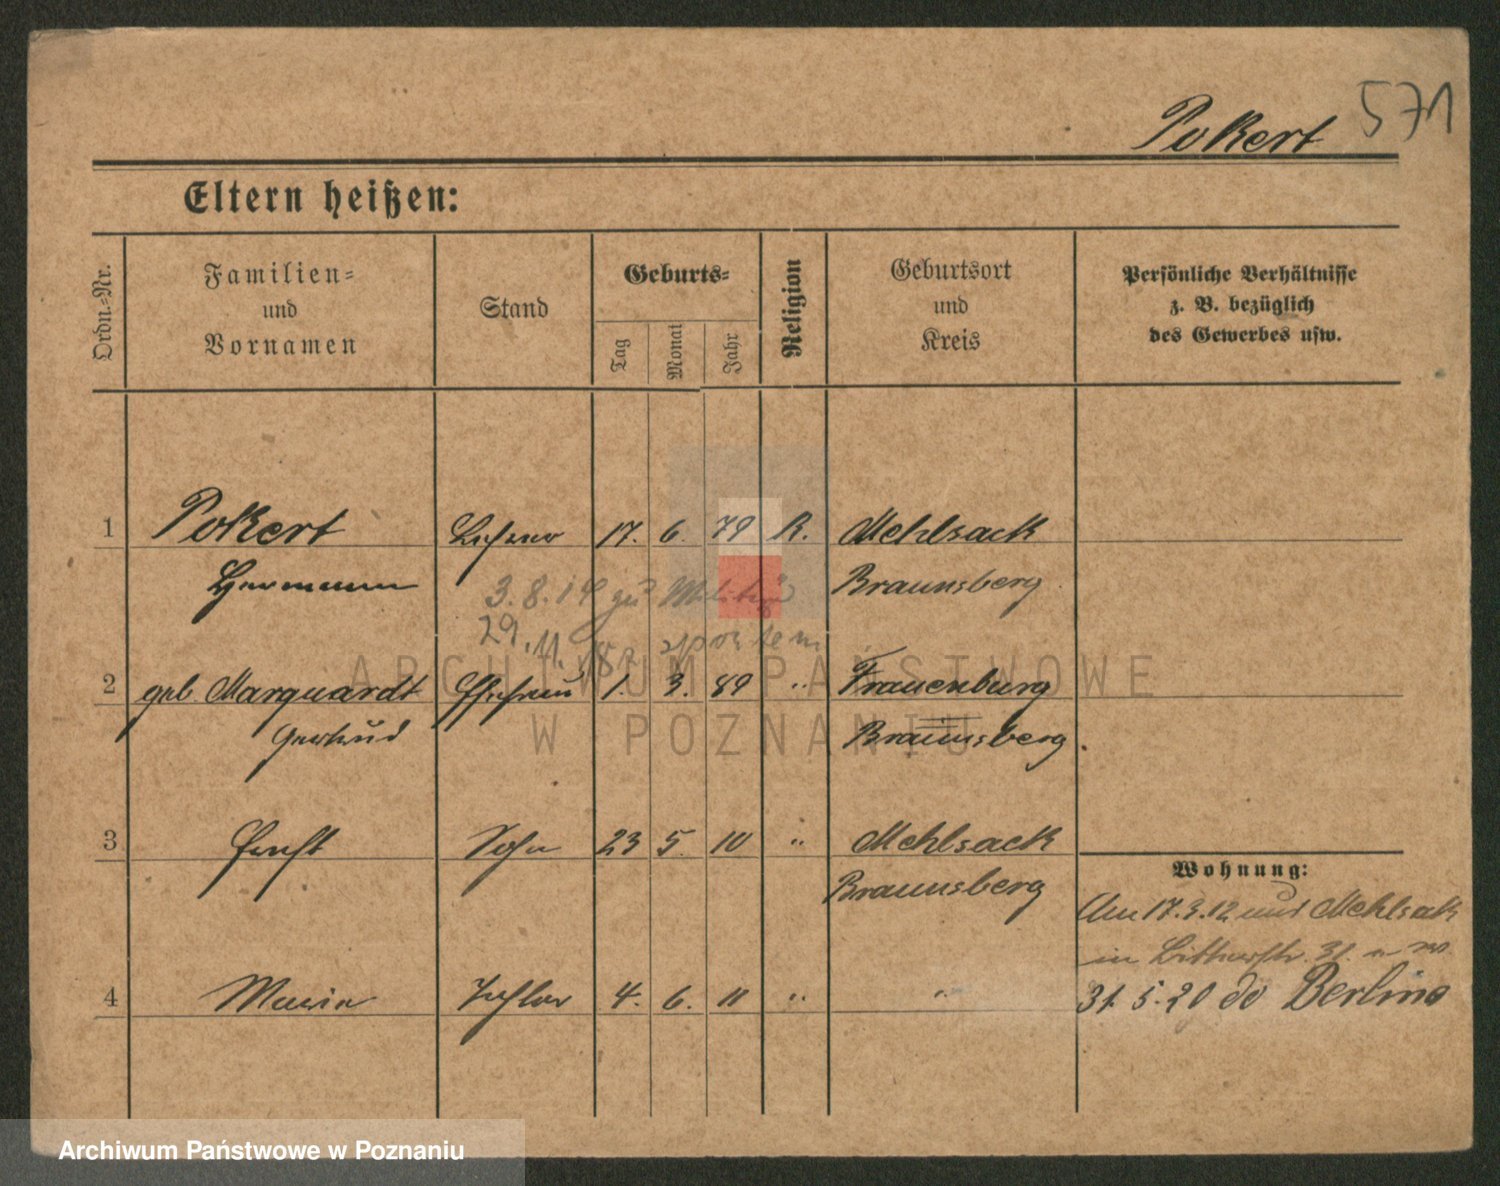 571
Pokert
Eltern heißen:
Ordn.-Nr.
Familien-
und
Vornamen
Stand
Geburts-
Tag
Monat
Jahr
Religion
Geburtsort
und
Kreis
Persönliche Verhältnisse
z. B. bezüglich
des Gewerbes usw.
1 Pokert Lehrer 17. 6. 79 R. Mehlsack
Hermann Braunsberg
3.8.14 zu Militär
29.11.18 z spowtem
2 geb. Marquardt Ehefrau 1. 3. 89 " Frauenburg
Gertrud Braunsberg.
3 Ernst Sohn 23 5. 10 " Mehlsack
Braunsberg
Wohnung:
Am 17.3.12 aus Mehlsak
in 31.
4 Maria Tochter 4. 6. 11 " "
31. 5. 20 do Berlina
ARCHIWUM PAŃSTWOWE
W POZNANIU
Archiwum Państwowe w Poznaniu